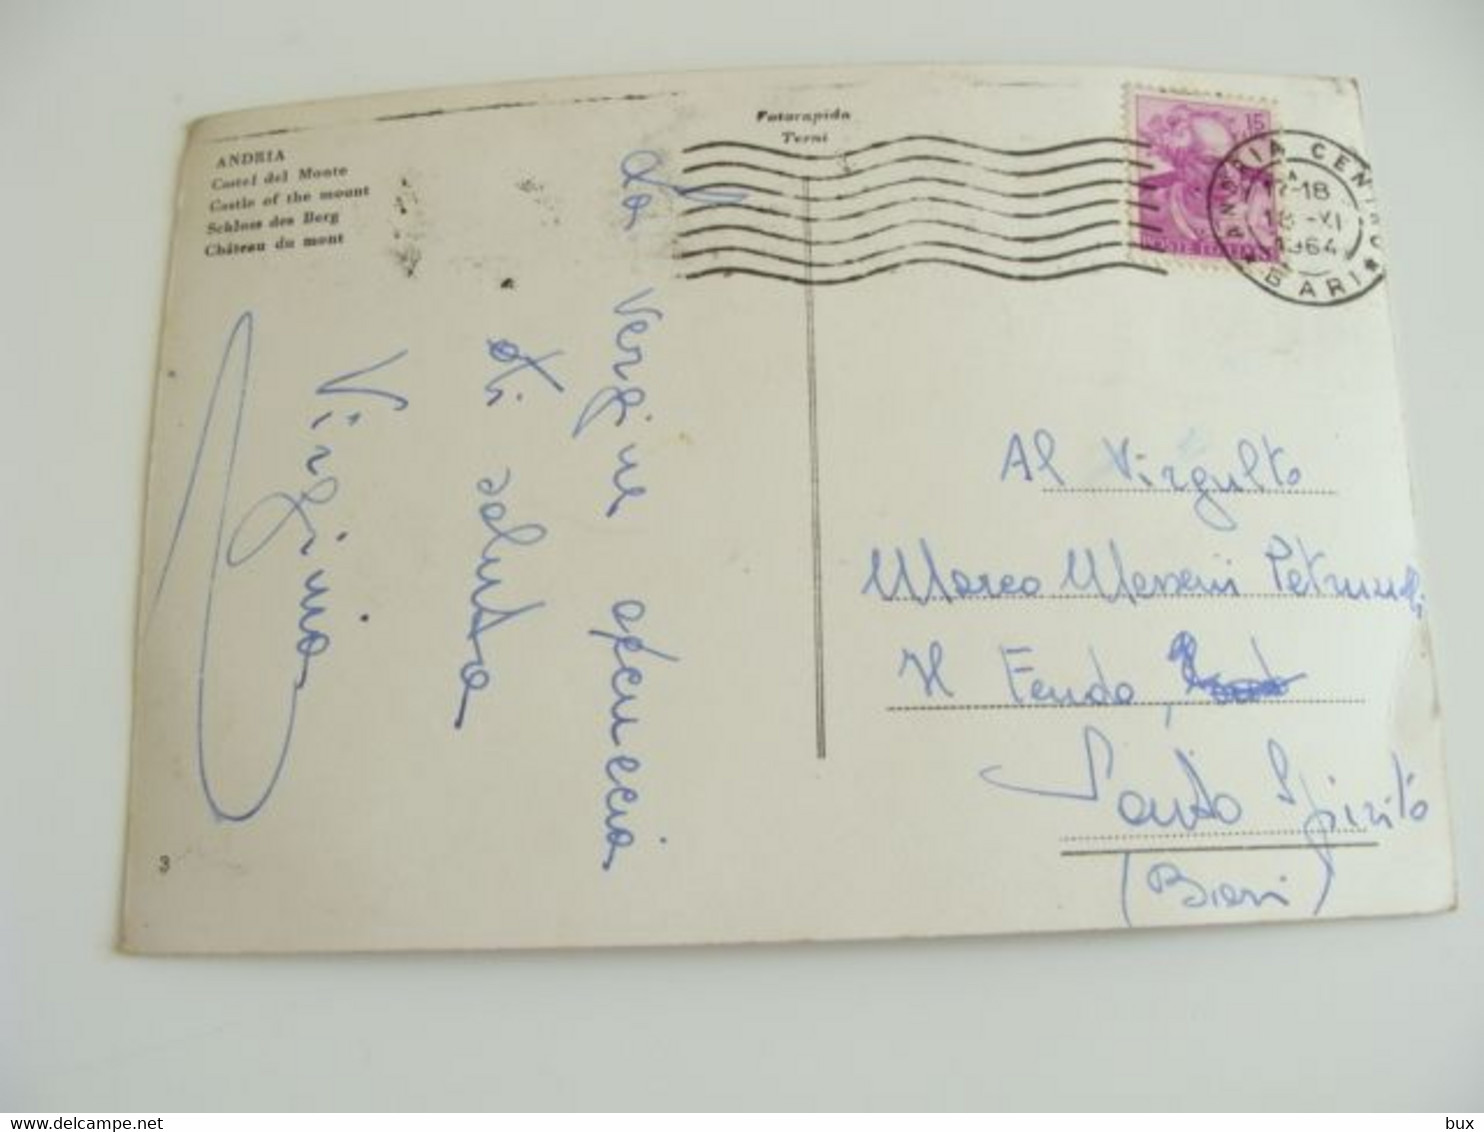 ANDRIA
Castel del Monte
Castle of the mount
Schloss des Berg
Château du mont
Fotorapida
Terni
15
POSTE ITALIANE
ANDRIA CENTRO
17-18
18 -XI
1964
* BARI *
La Vergine
ti saluta
Virginio
Al Virgulto
Marco Messeni Petruzzelli
Il Feudo,
Santo Spirito
(Bari)
3
delcampe.net
bux